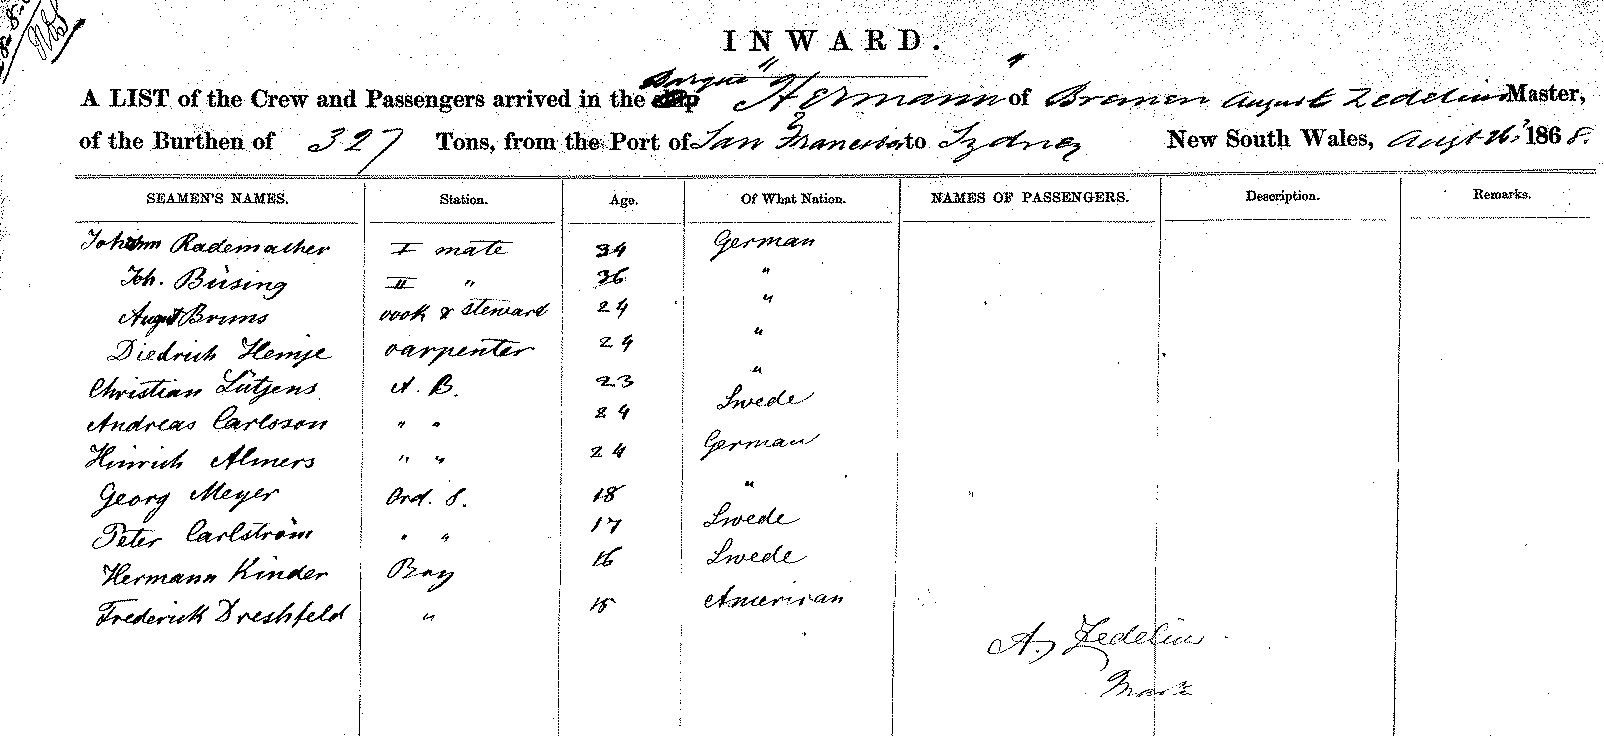 INWARD.
A LIST of the Crew and Passengers arrived in the Barque "Hermann" of Bremen August Zedelius Master,
of the Burthen of 327 Tons, from the Port of San Francisco to Sydney New South Wales, Augt 26, 1868.
SEAMEN'S NAMES. Station. Age. Of What Nation. NAMES OF PASSENGERS. Description. Remarks.
Johann Rademacher I mate 34 German
Joh. Büsing II " 36 "
August Bruns cook & steward 24 "
Diedrich Hemje carpenter 24 "
Christian Lütjens A. B. 23 "
Andreas Carlsson " " 24 Swede
Hinrich Almers " " 24 German
Georg Meyer Ord. S. 18 "
Peter Carlström " " 17 Swede
Hermann Kinder Boy 16 Swede
Frederick Dreshfeld " 15 American
A. Zedelius